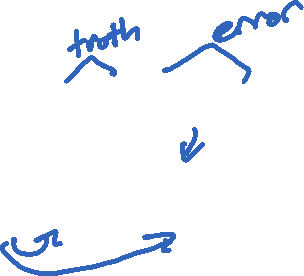 truth error